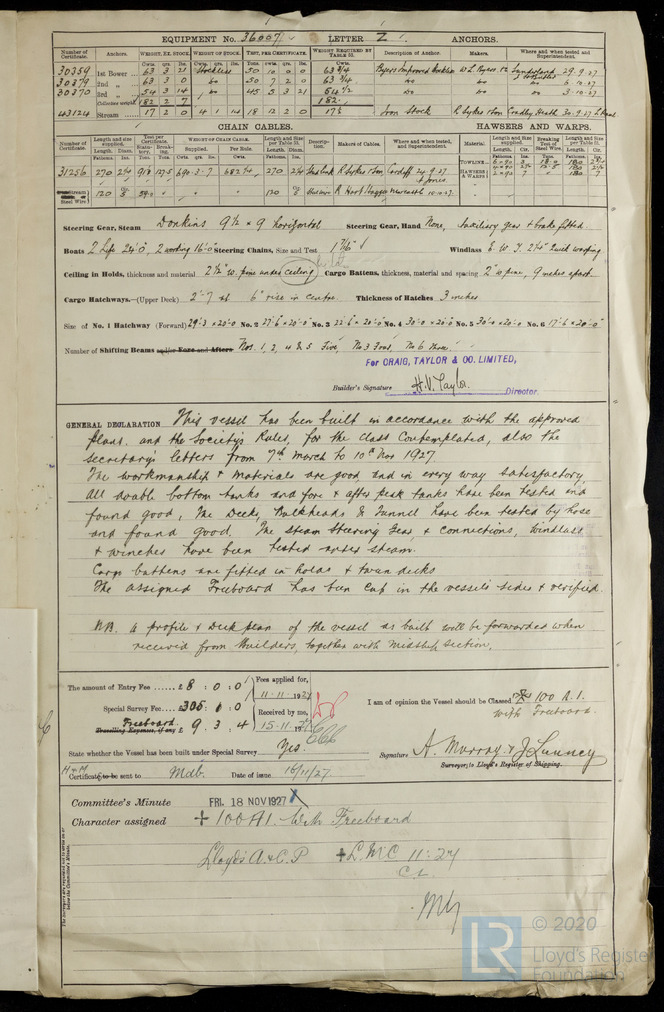 EQUIPMENT No. 36007 LETTER Z ANCHORS.
Number of Certificate. Anchors. WEIGHT, EX. STOCK. WEIGHT OF STOCK. TEST, PER CERTIFICATE. WEIGHT REQUIRED BY TABLE 53. Description of Anchor. Makers. Where and when tested and Superintendent.
Cwts. qrs. lbs. Cwts. qrs. lbs. Tons. cwts. qrs. lbs. Cwts.
30359 1st Bower 63 3 21 Stockless 50 10 0 0 63 3/4 Byers Improved Stockless W L Byers & Co Sunderland 29.9.27
30379 2nd " 63 3 0 do 50 7 2 0 63 3/4 do do do
30370 3rd " 54 3 14 do 45 5 3 21 54 1/2 do do do 3.10.27
Collective weight 182 2 7 182
43124 Stream 17 2 0 4 1 14 18 12 2 0 17 1/2 Iron Stock R Sykes & Son Cradley Heath 30.9.27
CHAIN CABLES. HAWSERS AND WARPS.
Number of Certificate. Length and size supplied. Test per Certificate. WEIGHT OF CHAIN CABLE. Length and size per Table 53. Description. Makers of Cables. Where and when tested, and Superintendent. Material. Length and size Supplied. Breaking Test of Steel Wire. Length and size per Table 53.
Fathoms. Ins. Tons. Tons. Supplied. Per Rule. Fathoms. Diam.
31256 270 690.3.7 682 270 Stud link R Sykes & Son Cardiff 29.9.27
TOWLINE
HAWSERS & WARPS
Stream Steel Wire 120 120 R Hood Haggie Newcastle
Steering Gear, Steam Donkins 9 1/2 × 9 horizontal Steering Gear, Hand None, Auxiliary gear & brake fitted
Boats 2 Life 24'0", 2 working 16'0" Steering Chains, Size and Test 1 7/16" Windlass E. W. T. quick warping
Ceiling in Holds, thickness and material 2 1/2" w. pine under ceiling Cargo Battens, thickness, material and spacing 2" w pine, 9 inches apart.
Cargo Hatchways.—(Upper Deck) 2'-7" at 6" rise in centre. Thickness of Hatches 3 inches
Size of No. 1 Hatchway (Forward) 29'-3" × 20'-0" No. 2 27'-6" × 20'-0" No. 3 22'-6" × 20'-0" No. 4 30'-0" × 20'-0" No. 5 30'-0" × 20'-0" No. 6 17'-6" × 20'-0"
Number of Shifting Beams and/or Fore and Afters Nos. 1, 2, 4 & 5 Five, No 3 Four, No 6 Three
For CRAIG, TAYLOR & CO. LIMITED,
Builder's Signature H.V. Taylor Director.
GENERAL DECLARATION This vessel has been built in accordance with the approved
plans. and the Society's Rules, for the class Contemplated, also the
secretary's letters from 7th March to 10th Nov 1927
The workmanship & materials are good and in every way satisfactory,
All double bottom tanks and fore & after peak tanks have been tested and
found good, The Decks, Bulkheads & Tunnel have been tested by hose
and found good. The steam Steering Gear & connections, Windlass
& winches have been tested under steam.
Cargo battens are fitted in holds & tween decks
The assigned Freeboard has been cut in the vessel's sides & verified.
NB. A profile & Deck plan of the vessel as built will be forwarded when
received from Builders, together with midship section.
The amount of Entry Fee £8 : 0 : 0 Fees applied for, 11.11.1927
Special Survey Fee 305 : 0 : 0 Received by me,
Freeboard Travelling Expenses, if any £ 9 . 3 . 4 15.11.1927
I am of opinion the Vessel should be Classed 100 A.1.
with Freeboard.
State whether the Vessel has been built under Special Survey Yes.
Signature A. Murray & J Lunney
Surveyor to Lloyd's Register of Shipping.
Certificate to be sent to Mdb. Date of issue 18/11/27
Committee's Minute FRI. 18 NOV 1927
Character assigned + 100A1 With Freeboard
Lloyd's A & C. P + L.M.C 11.27
C.L.
The Surveyors are requested not to write on or below the Committee's Minute.
LR © 2020
Lloyd's Register
Foundation